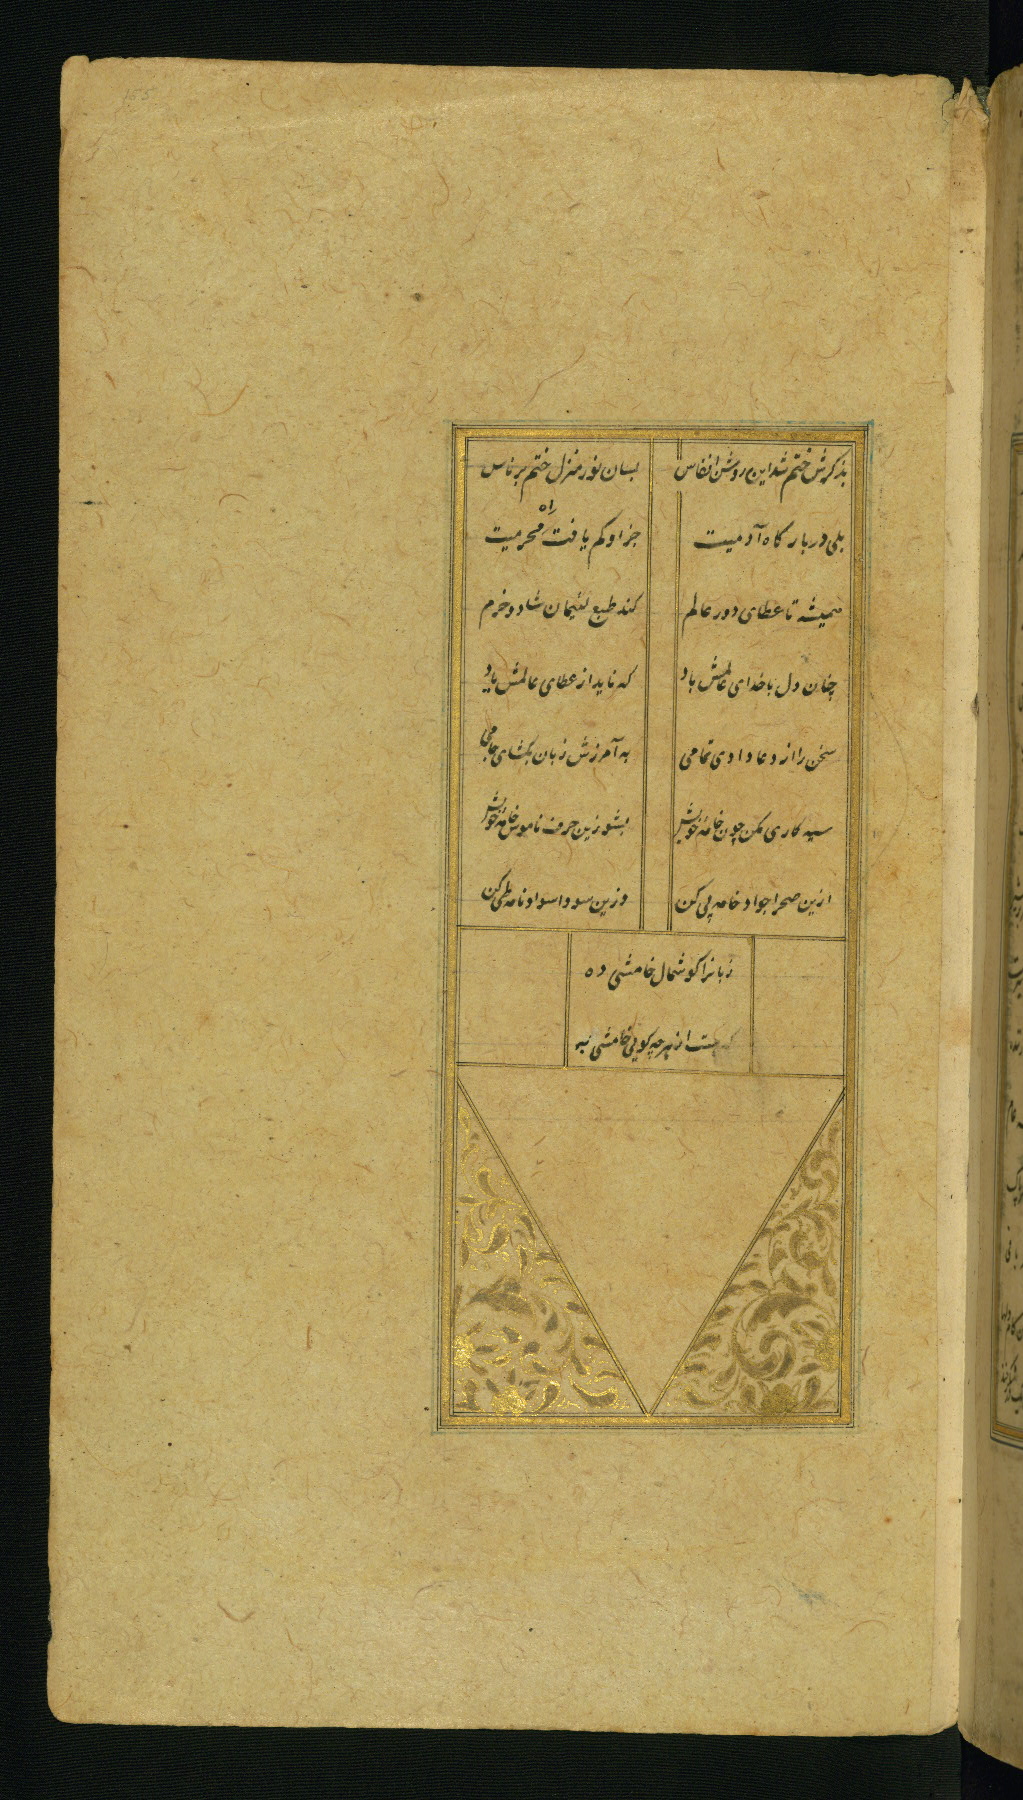 155
بذکرش ختم شد این روشن انفاس بسان نور منزل ختم بر ناس
بلی در بارگاه آدمیت جز او کم یافت راه محرمیت
همیشه تا عطای دور عالم کند طبع لئیمان شاد و خرم
چنان دل با خدای عالمش باد که ناید از عطای عالمش یاد
سخن را از دعا دادی تمامی به آمرزش زبان بکشای جامی
سیه کاری مکن چون خامه خویش بشو زین حرف ناموس خامه خویش
ازین صحرا جواد خامه پی کن وزین سودا سواد نامه طی کن
زبانرا کوشمال خامشی ده
که هست از هر چه کویی خامشی به